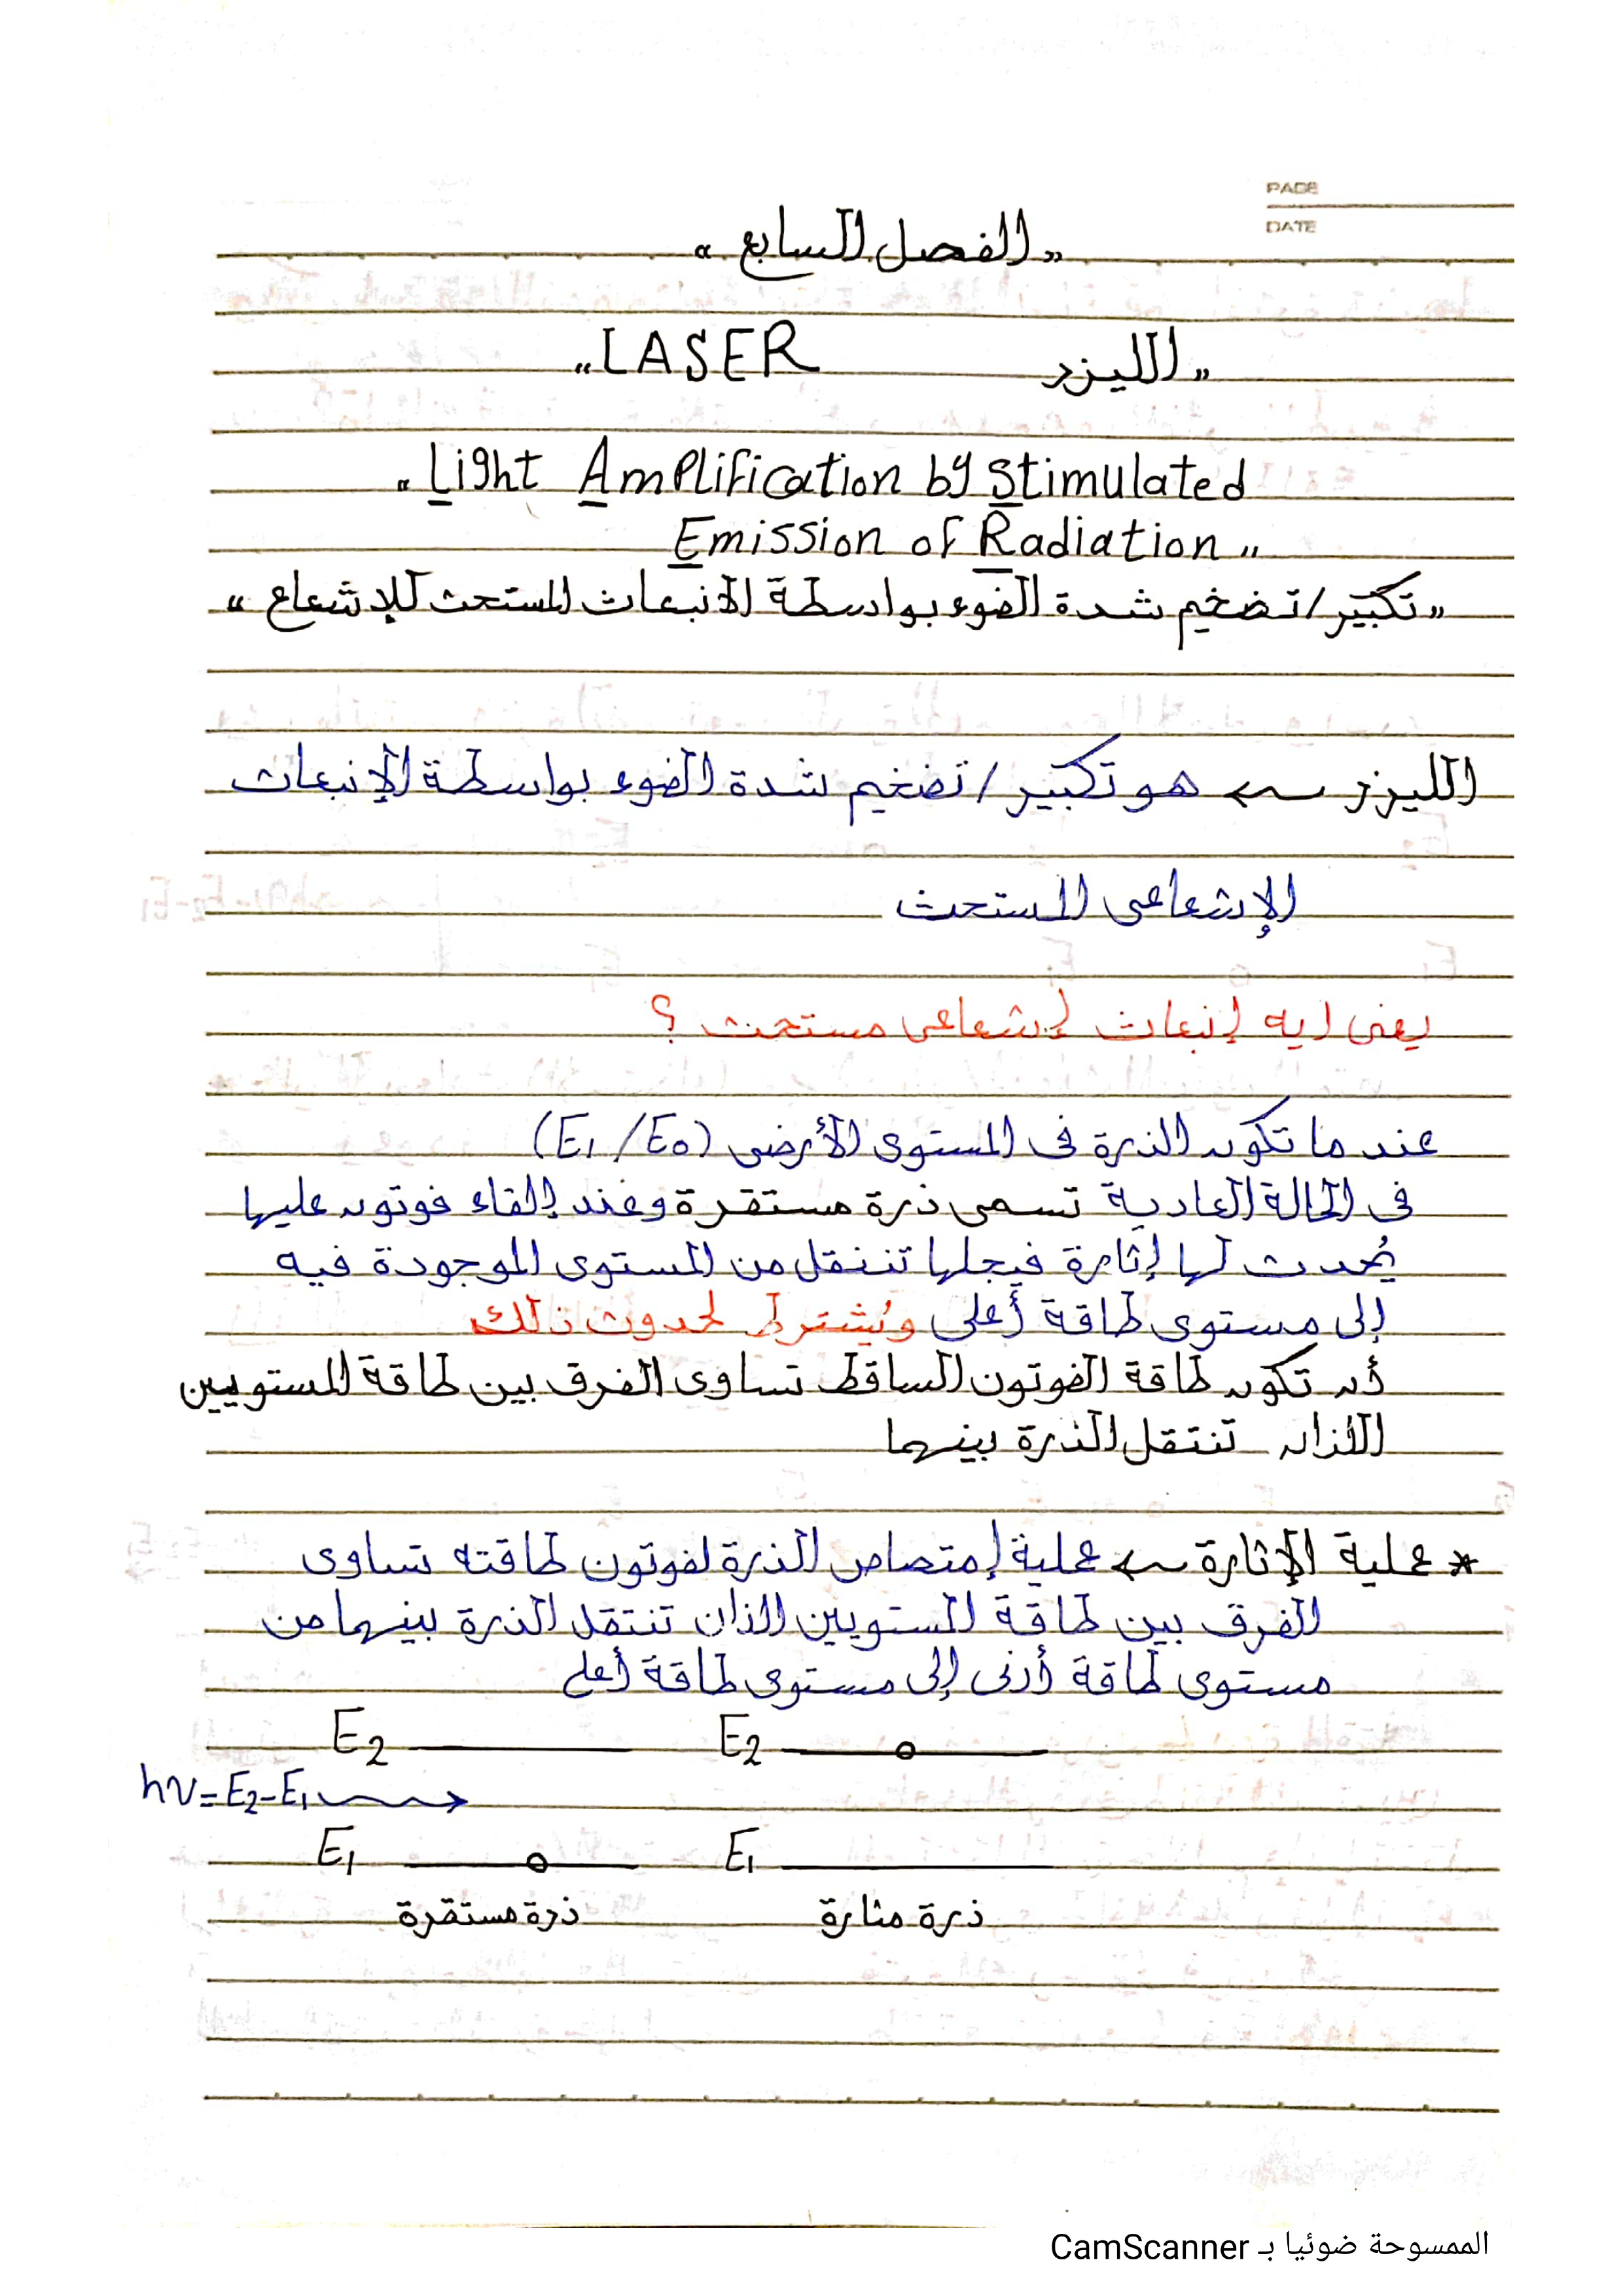 PAGE
DATE
"الفصل السابع"
"الليزر LASER"
"Light Amplification by Stimulated
Emission of Radiation"
"تكبير/تضخيم شدة الضوء بواسطة الانبعاث المستحث للإشعاع"
الليزر ← هو تكبير/تضخيم شدة الضوء بواسطة الإنبعاث
الإشعاعى المستحث
يعنى ايه إنبعاث إشعاعى مستحث ؟
عند ما تكون الذرة فى المستوى الأرضى (E1/E0)
فى الحالة العادية تسمى ذرة مستقرة وعند إلقاء فوتون عليها
يُحدث لها إثارة فيجلها تنتقل من المستوى الموجودة فيه
إلى مستوى طاقة أعلى ويُشترط لحدوث ذلك
أن تكون طاقة الفوتون الساقط تساوى الفرق بين طاقة المستويين
اللذان تنتقل الذرة بينهما
* عملية الإثارة ← عملية إمتصاص الذرة لفوتون طاقته تساوى
الفرق بين طاقة المستويين الذان تنتقل الذرة بينهما من
مستوى طاقة أدنى إلى مستوى طاقة أعلى
E2 E2
hν=E2-E1
E1 E1
ذرة مستقرة ذرة مثارة
الممسوحة ضوئيا بـ CamScanner